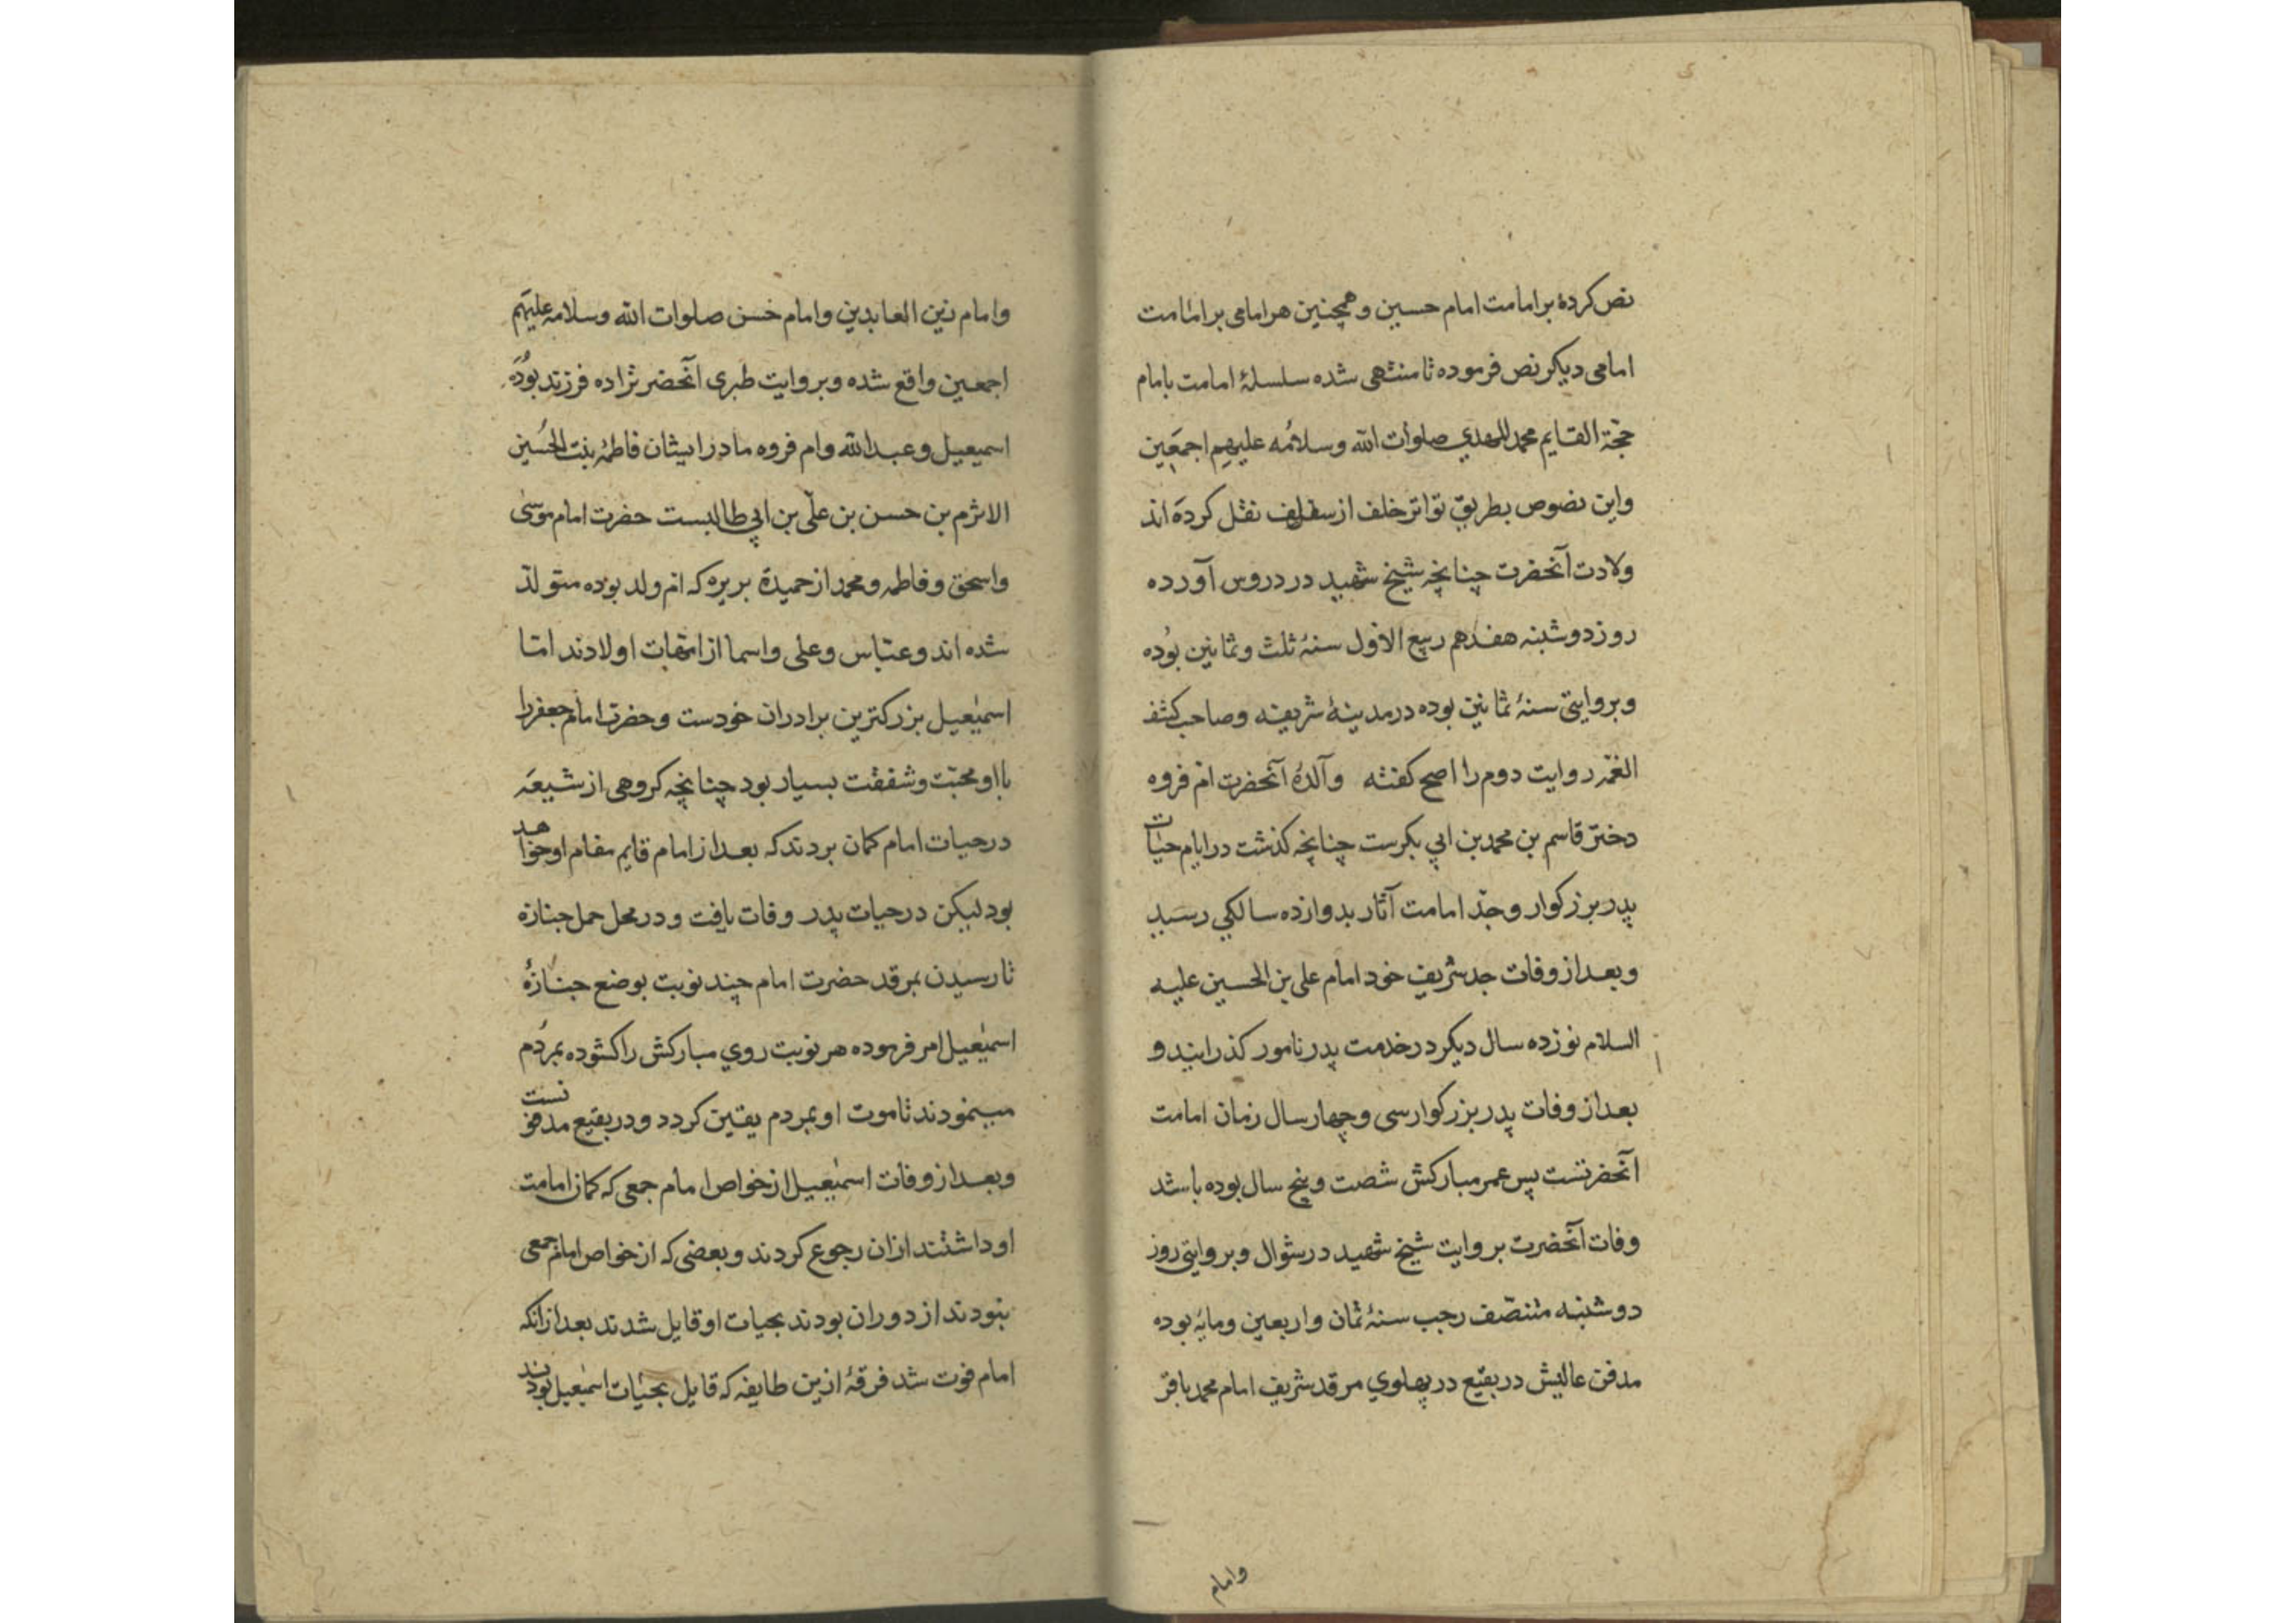 نص کرده بر امامت امام حسین و همچنین هر امامی بر امامت
امامی دیکر نص فرموده تا منتهی شده سلسلهٔ امامت بامام
حجّة القایم محمد المهدی صلوات الله وسلامه علیهم اجمعین
واین نصوص بطریق تواتر خلف از سلف نقل کرده اند
ولادت آنحضرت چنانچه شیخ شهید در دروس آورده
روز دوشنبه هفدهم ربیع الاول سنهٔ ثلث وثمانین بوده
وبروایتی سنهٔ ثمانین بوده در مدینهٔ شریفه وصاحب کشف
الغمّه روایت دوم را اصح کفته وآلدهٔ آنحضرت امّ فروه
دختر قاسم بن محمد بن ابی بکرست چنانچه کذشت در ایام حیات
پدر بزرکوار وجدّ امامت آثار بدوازده سالکی رسید
وبعد از وفات جد شریف خود امام علی بن الحسین علیه
السلام نوزده سال دیکر در خدمت پدر نامور کذرانید و
بعد از وفات پدر بزرکوار سی وچهار سال زمان امامت
آنحضرتست پس عمر مبارکش شصت وپنج سال بوده باشد
وفات آنحضرت بروایت شیخ شهید در شوال وبروایتی روز
دوشنبه منتصّف رجب سنهٔ ثمان واربعین ومایه بوده
مدفن عالیش در بقیع در پهلوی مرقد شریف امام محمد باقر
وامام
وامام زین العابدین وامام حسن صلوات الله وسلامه علیهم
اجمعین واقع شده وبروایت طبری آنحضرتراده فرزند بوده
اسمیعیل وعبدالله وام فروه مادر ایشان فاطمهٔ بنت الحسین
الاثرم بن حسن بن علی بن ابی طالبست حضرت امام موسی
واسحق وفاطمه ومحمد از حمیدهٔ بربره که امّ ولد بوده متولد
شده اند وعبّاس وعلی واسما از امّهات اولادند امّا
اسمیٰعیل بزرکترین برادران خودست وحضرت امام جعفر را
بااو محبّت وشفقت بسیار بود چنانچه کروهی از شیعه
در حیات امام کمان بردند که بعد از امام قایم مقام او خواهد
بود لیکن در حیات پدر وفات یافت و در محل حمل جنازه
تا رسیدن بمرقد حضرت امام چند نوبت بوضع جنازهٔ
اسمیٰعیل امر فرموده هر نوبت روی مبارکش را کشوده بمردم
میبنمودند تا موت او بمردم یقین کردد ودر بقیع مدفونست
وبعد از وفات اسمیٰعیل از خواص امام جمعی که کمان امامت
او داشتند ازان رجوع کردند وبعضی که از خواص امام جمعی
بنودند از دوران بودند بحیات او قایل شدند بعد ازانکه
امام فوت شد فرقهٔ ازین طایفه که قایل بحیات اسمیٰعیل بودند